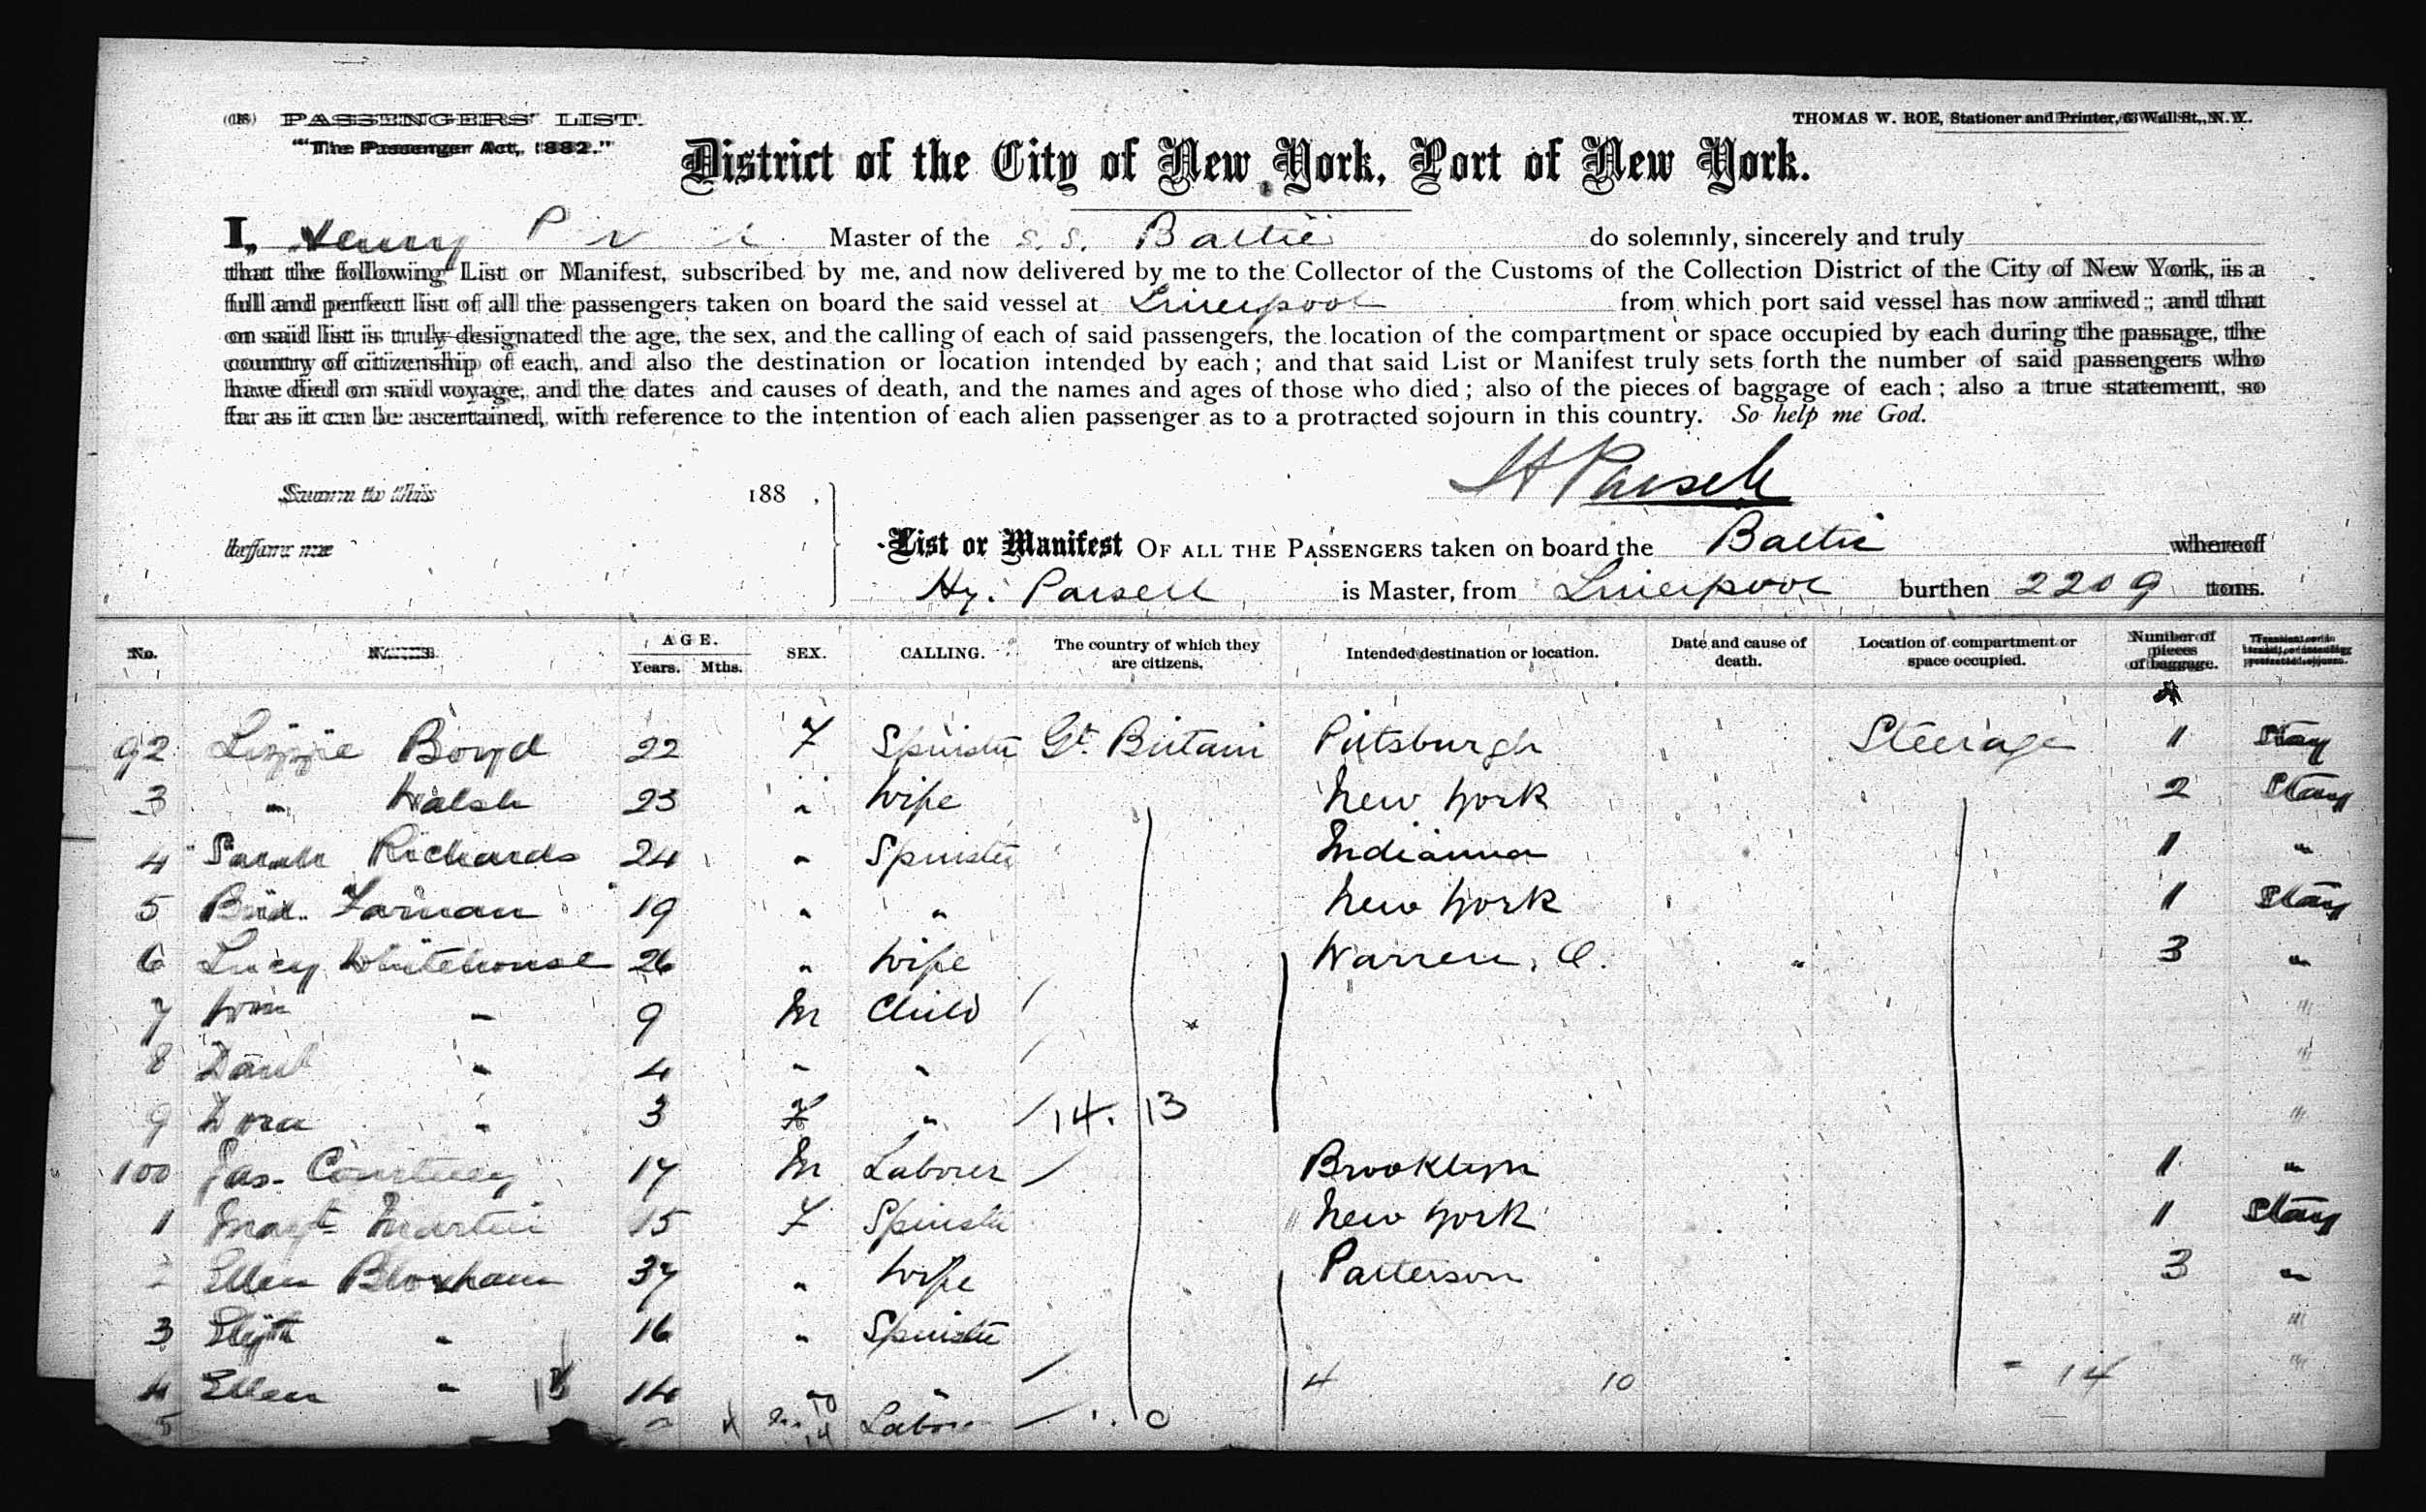 (18) PASSENGERS' LIST.
"The Passenger Act, 1882."
THOMAS W. ROE, Stationer and Printer, 63 Wall St., N.Y.
District of the City of New York, Port of New York.
I, Henry Master of the S.S. Baltic do solemnly, sincerely and truly
that the following List or Manifest, subscribed by me, and now delivered by me to the Collector of the Customs of the Collection District of the City of New York, is a
full and perfect list of all the passengers taken on board the said vessel at Liverpool from which port said vessel has now arrived; and that
on said list is truly designated the age, the sex, and the calling of each of said passengers, the location of the compartment or space occupied by each during the passage, the
country of citizenship of each, and also the destination or location intended by each; and that said List or Manifest truly sets forth the number of said passengers who
have died on said voyage, and the dates and causes of death, and the names and ages of those who died; also of the pieces of baggage of each; also a true statement, so
far as it can be ascertained, with reference to the intention of each alien passenger as to a protracted sojourn in this country. So help me God.
H Parsell
Sworn to this 188 ,
before me
List or Manifest OF ALL THE PASSENGERS taken on board the Baltic whereof
Hy. Parsell is Master, from Liverpool burthen 2209 tons.
No. NAMES AGE. Years. Mths. SEX. CALLING. The country of which they are citizens. Intended destination or location. Date and cause of death. Location of compartment or space occupied. Number of pieces of baggage.
92 Lizzie Boyd 22 F Spinster Gt. Britain Pittsburgh Steerage 1 Stay
3 " Walsh 23 " Wife New York 2 Stay
4 Sarah Richards 24 " Spinster Indianna 1 "
5 Brid. Farnan 19 " " New York 1 Stay
6 Lucy Whitehouse 26 " Wife Warren, O. 3 "
7 Wm " 9 M Child "
8 " 4 " " "
9 Dora " 3 F " 14. 13 "
100 Jas. Courtney 17 M Laborer Brooklyn 1 "
1 Margt Martin 15 F Spinster New York 1 Stay
2 Ellen Bloxham 37 " Wife Patterson 3 "
3 " 16 " Spinster "
4 Ellen " 14 " " 4 10 14 "
5 Labor